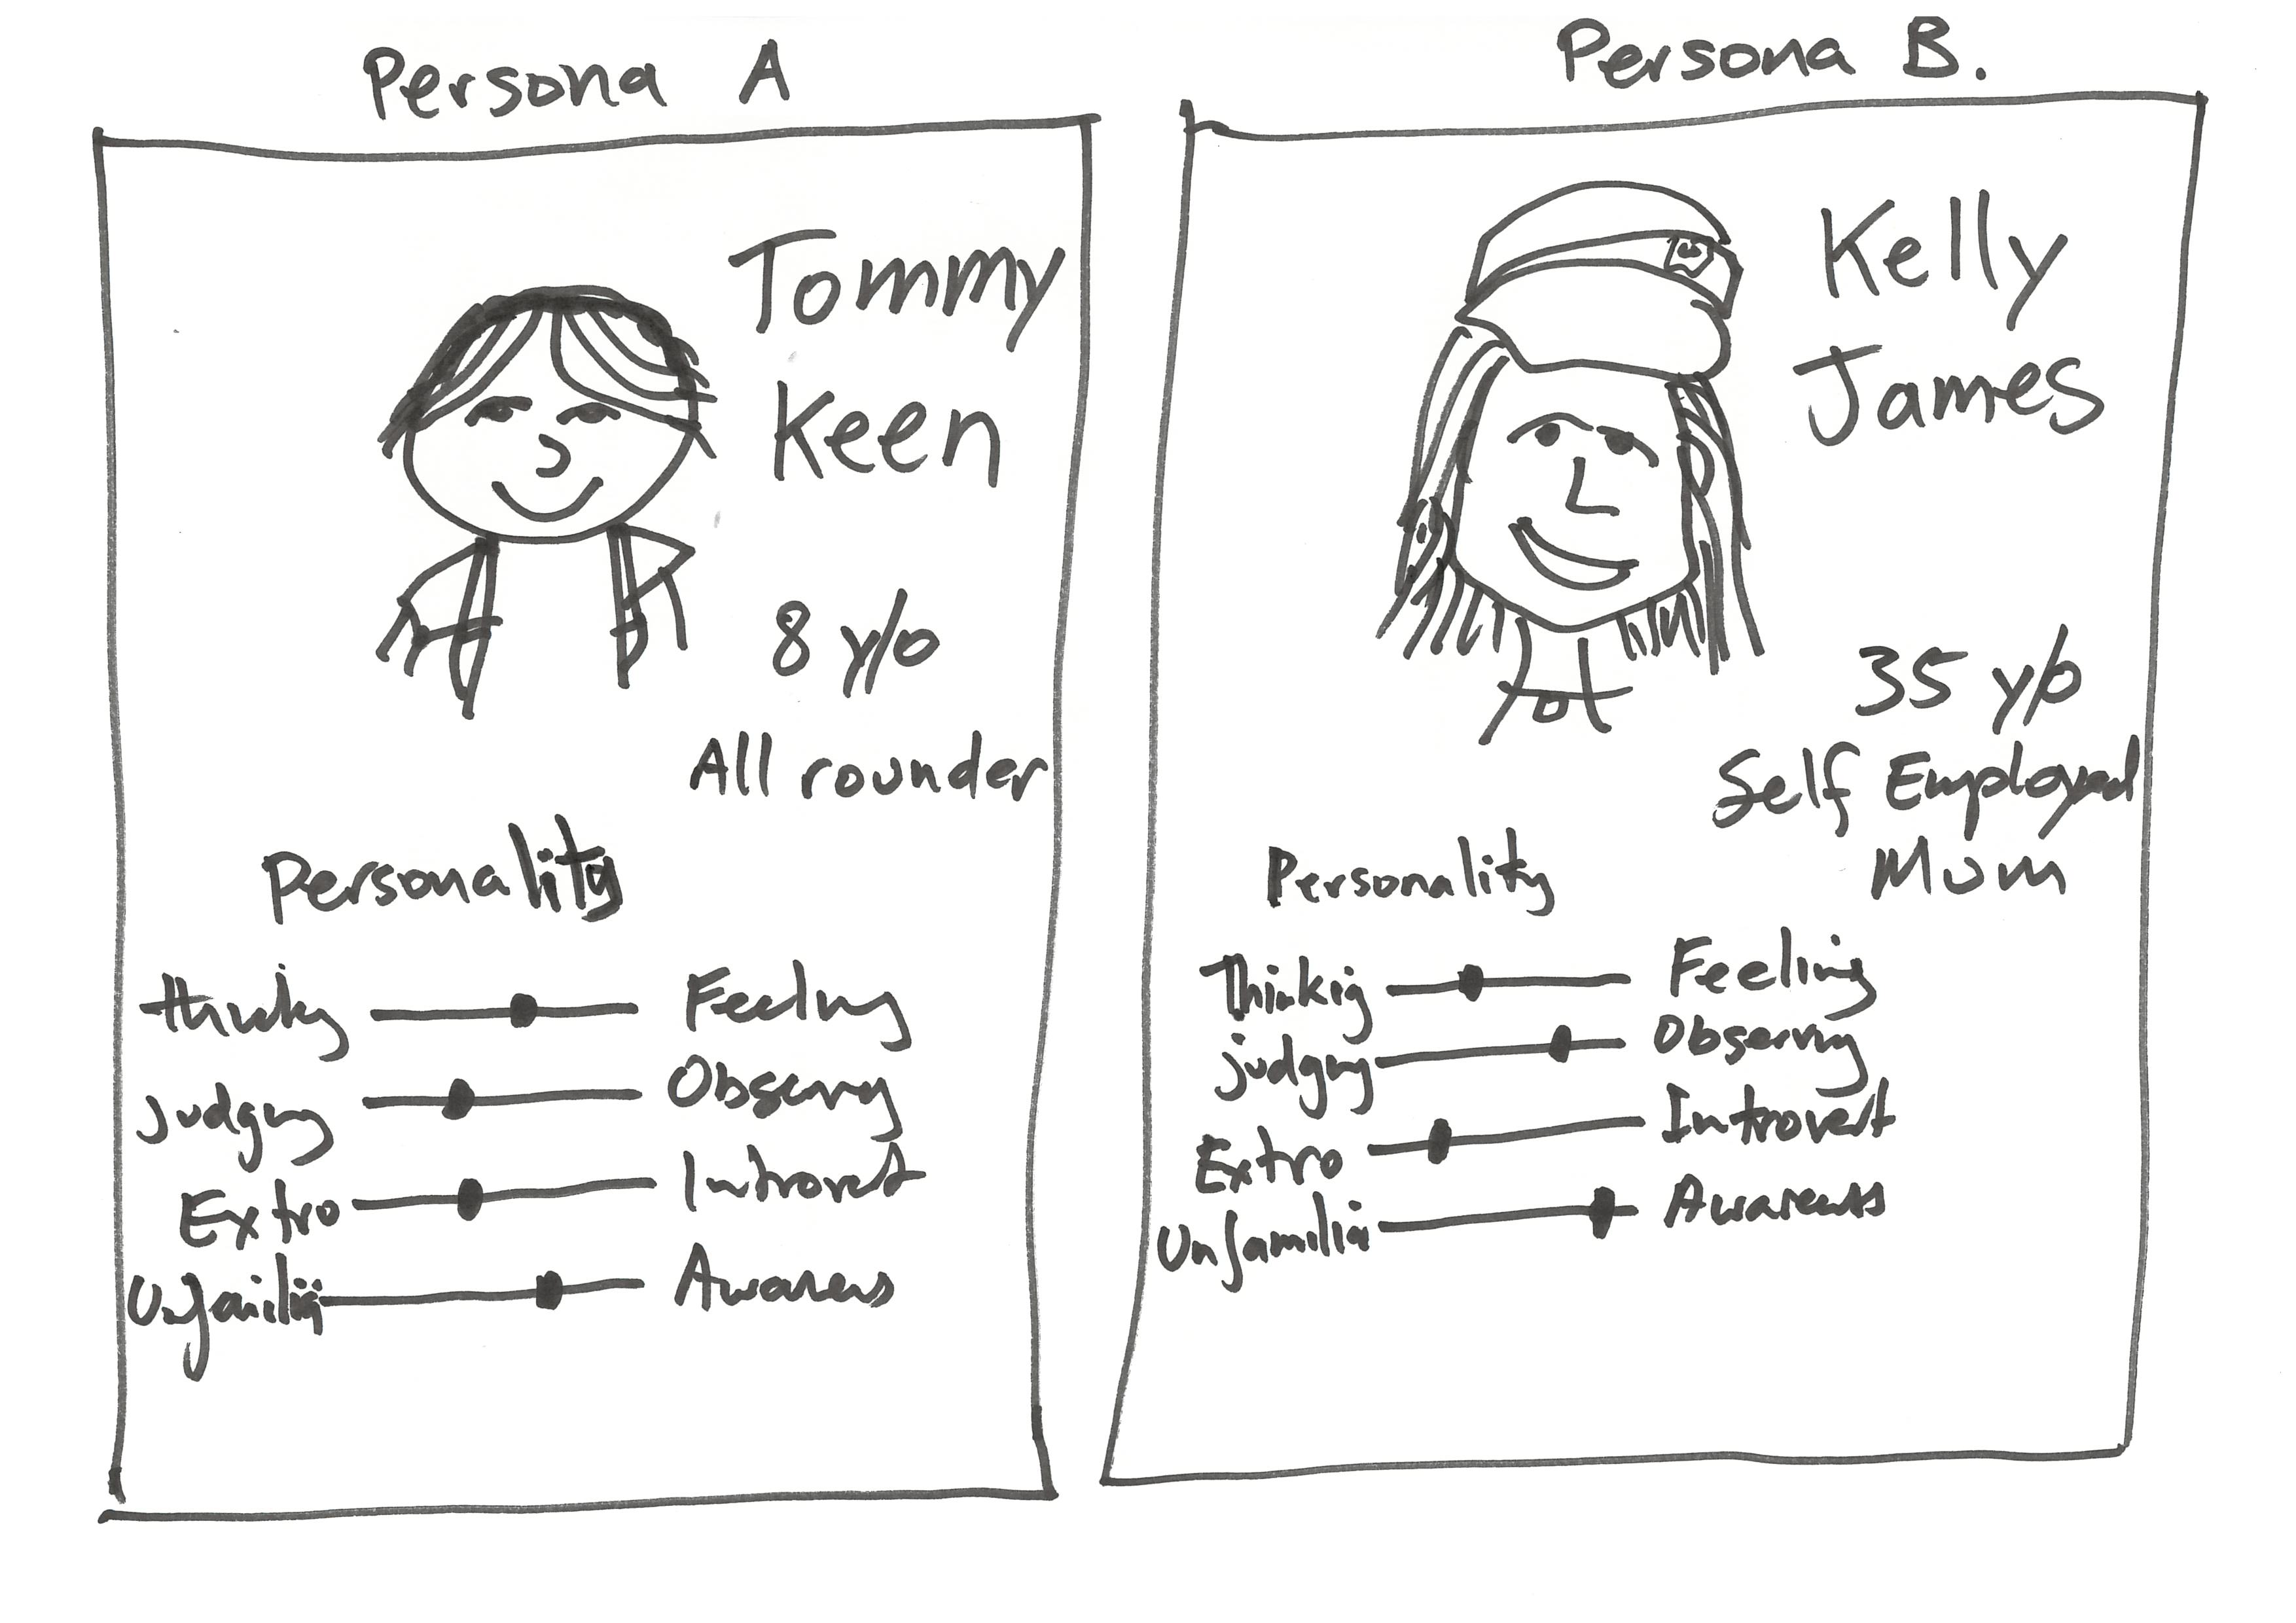 Persona A
Tommy
Keen
8 y/o
All rounder
Personality
thinking Feeling
Judging Observing
Extro Introvert
Unfamiliar Awareness
Persona B.
Kelly
James
35 y/o
Self Employed
Mum
Personality
Thinkig Feeling
judging Observing
Extro Introvert
Unfamilia Awareness